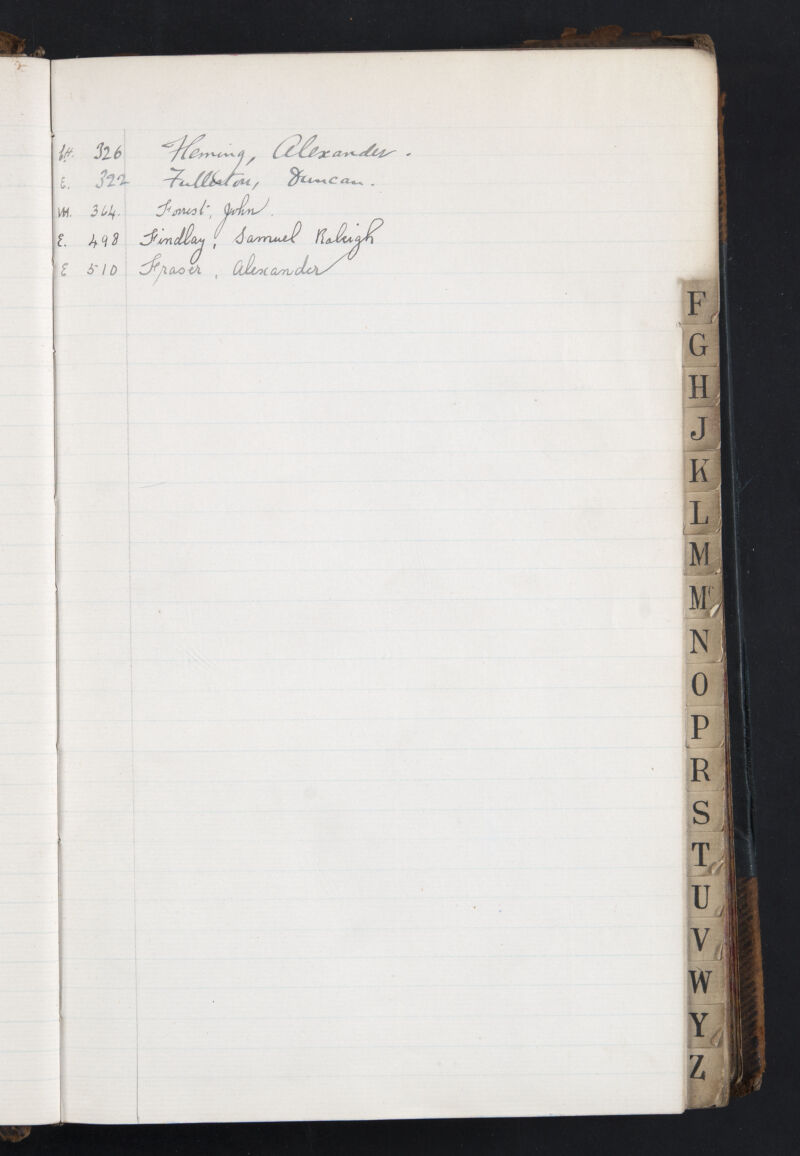 326 Fleming, Alexander.
E. 322 Fullerton, Duncan.
M. 364. Forrest, John.
E. 498 Findlay, Samuel Raleigh
E 510 Fraser, Alexander
F
G
H
J
K
L
M
Mc
N
O
P
R
S
T
U
V
W
Y
Z